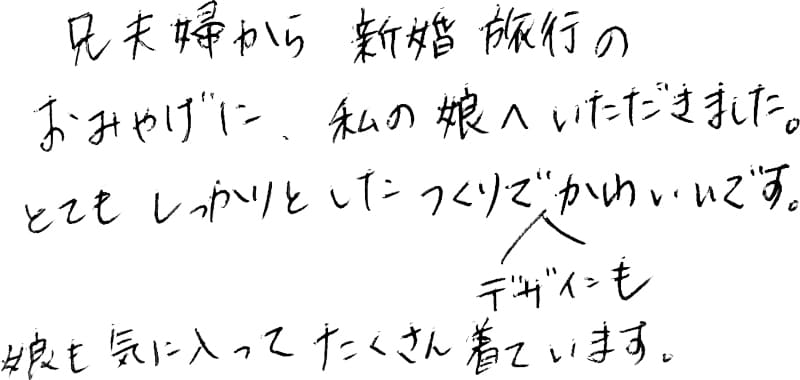 兄夫婦から 新婚旅行の
おみやげに、私の娘へいただきました。
とても しっかりとした つくりで かわいいです。
デザインも
娘も気に入って たくさん着ています。